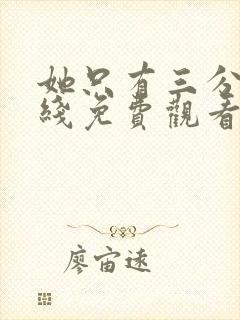 她只有三分
綫免費觀看
廖宙遠